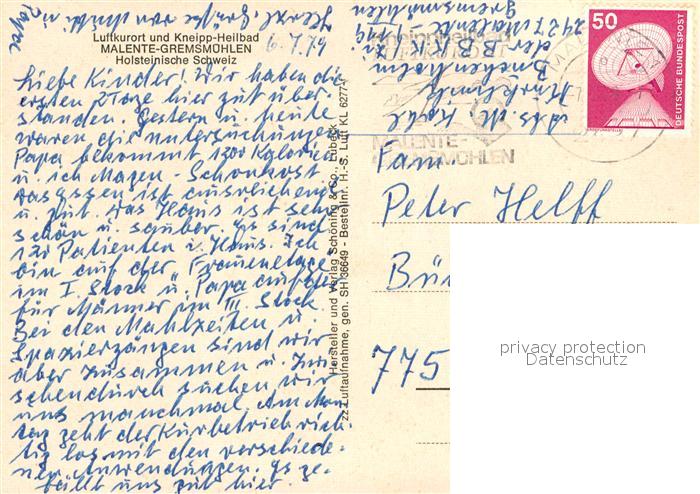 Luftkurort und Kneipp-Heilbad
MALENTE-GREMSMÜHLEN
Holsteinische Schweiz
6.7.79
Liebe Kinder! Wir haben die
ersten Tage hier gut über-
standen. Gestern u. heute
waren die Untersuchungen
Papa bekommt 1200 Kalorien
u. ich Magen-Schonkost
Das Essen ist ausreichend
u. gut. Das Haus ist sehr
schön u. sauber. Es sind
120 Patienten i. Haus. Ich
bin auf der Frauenetage
im I. Stock u. Papa auf der
für Männer im III. Stock.
Bei den Mahlzeiten u.
Spaziergängen sind wir
aber zusammen u. zwi-
schendurch suchen wir
uns manchmal. Am Mon-
tag geht der Kurbetrieb rich-
tig los mit den verschiede-
nen Anwendungen. Es ge-
fällt uns gut hier.
Herzl. Grüße von Mutti u.
Abs. M.
Kurklinik
Buchenholm
der BBK
2427 Malente-
Gremsmühlen
Hersteller und Verlag Schöning & Co., Lübeck
zz Luftaufnahme, gen. SH 36649 - Bestellnr. H.-S. Luft KL 6277
50
DEUTSCHE BUNDESPOST
MALENTE-
GREMSMÜHLEN
Fam.
Peter Helff
Bün
775
privacy protection
Datenschutz